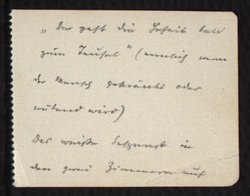 „Da geht die Hoheit bald
zum Teufel“ (nämlich wenn
der Mensch gekränkt oder
wütend wird)
Das weiße in
den zwei Zimmern auf